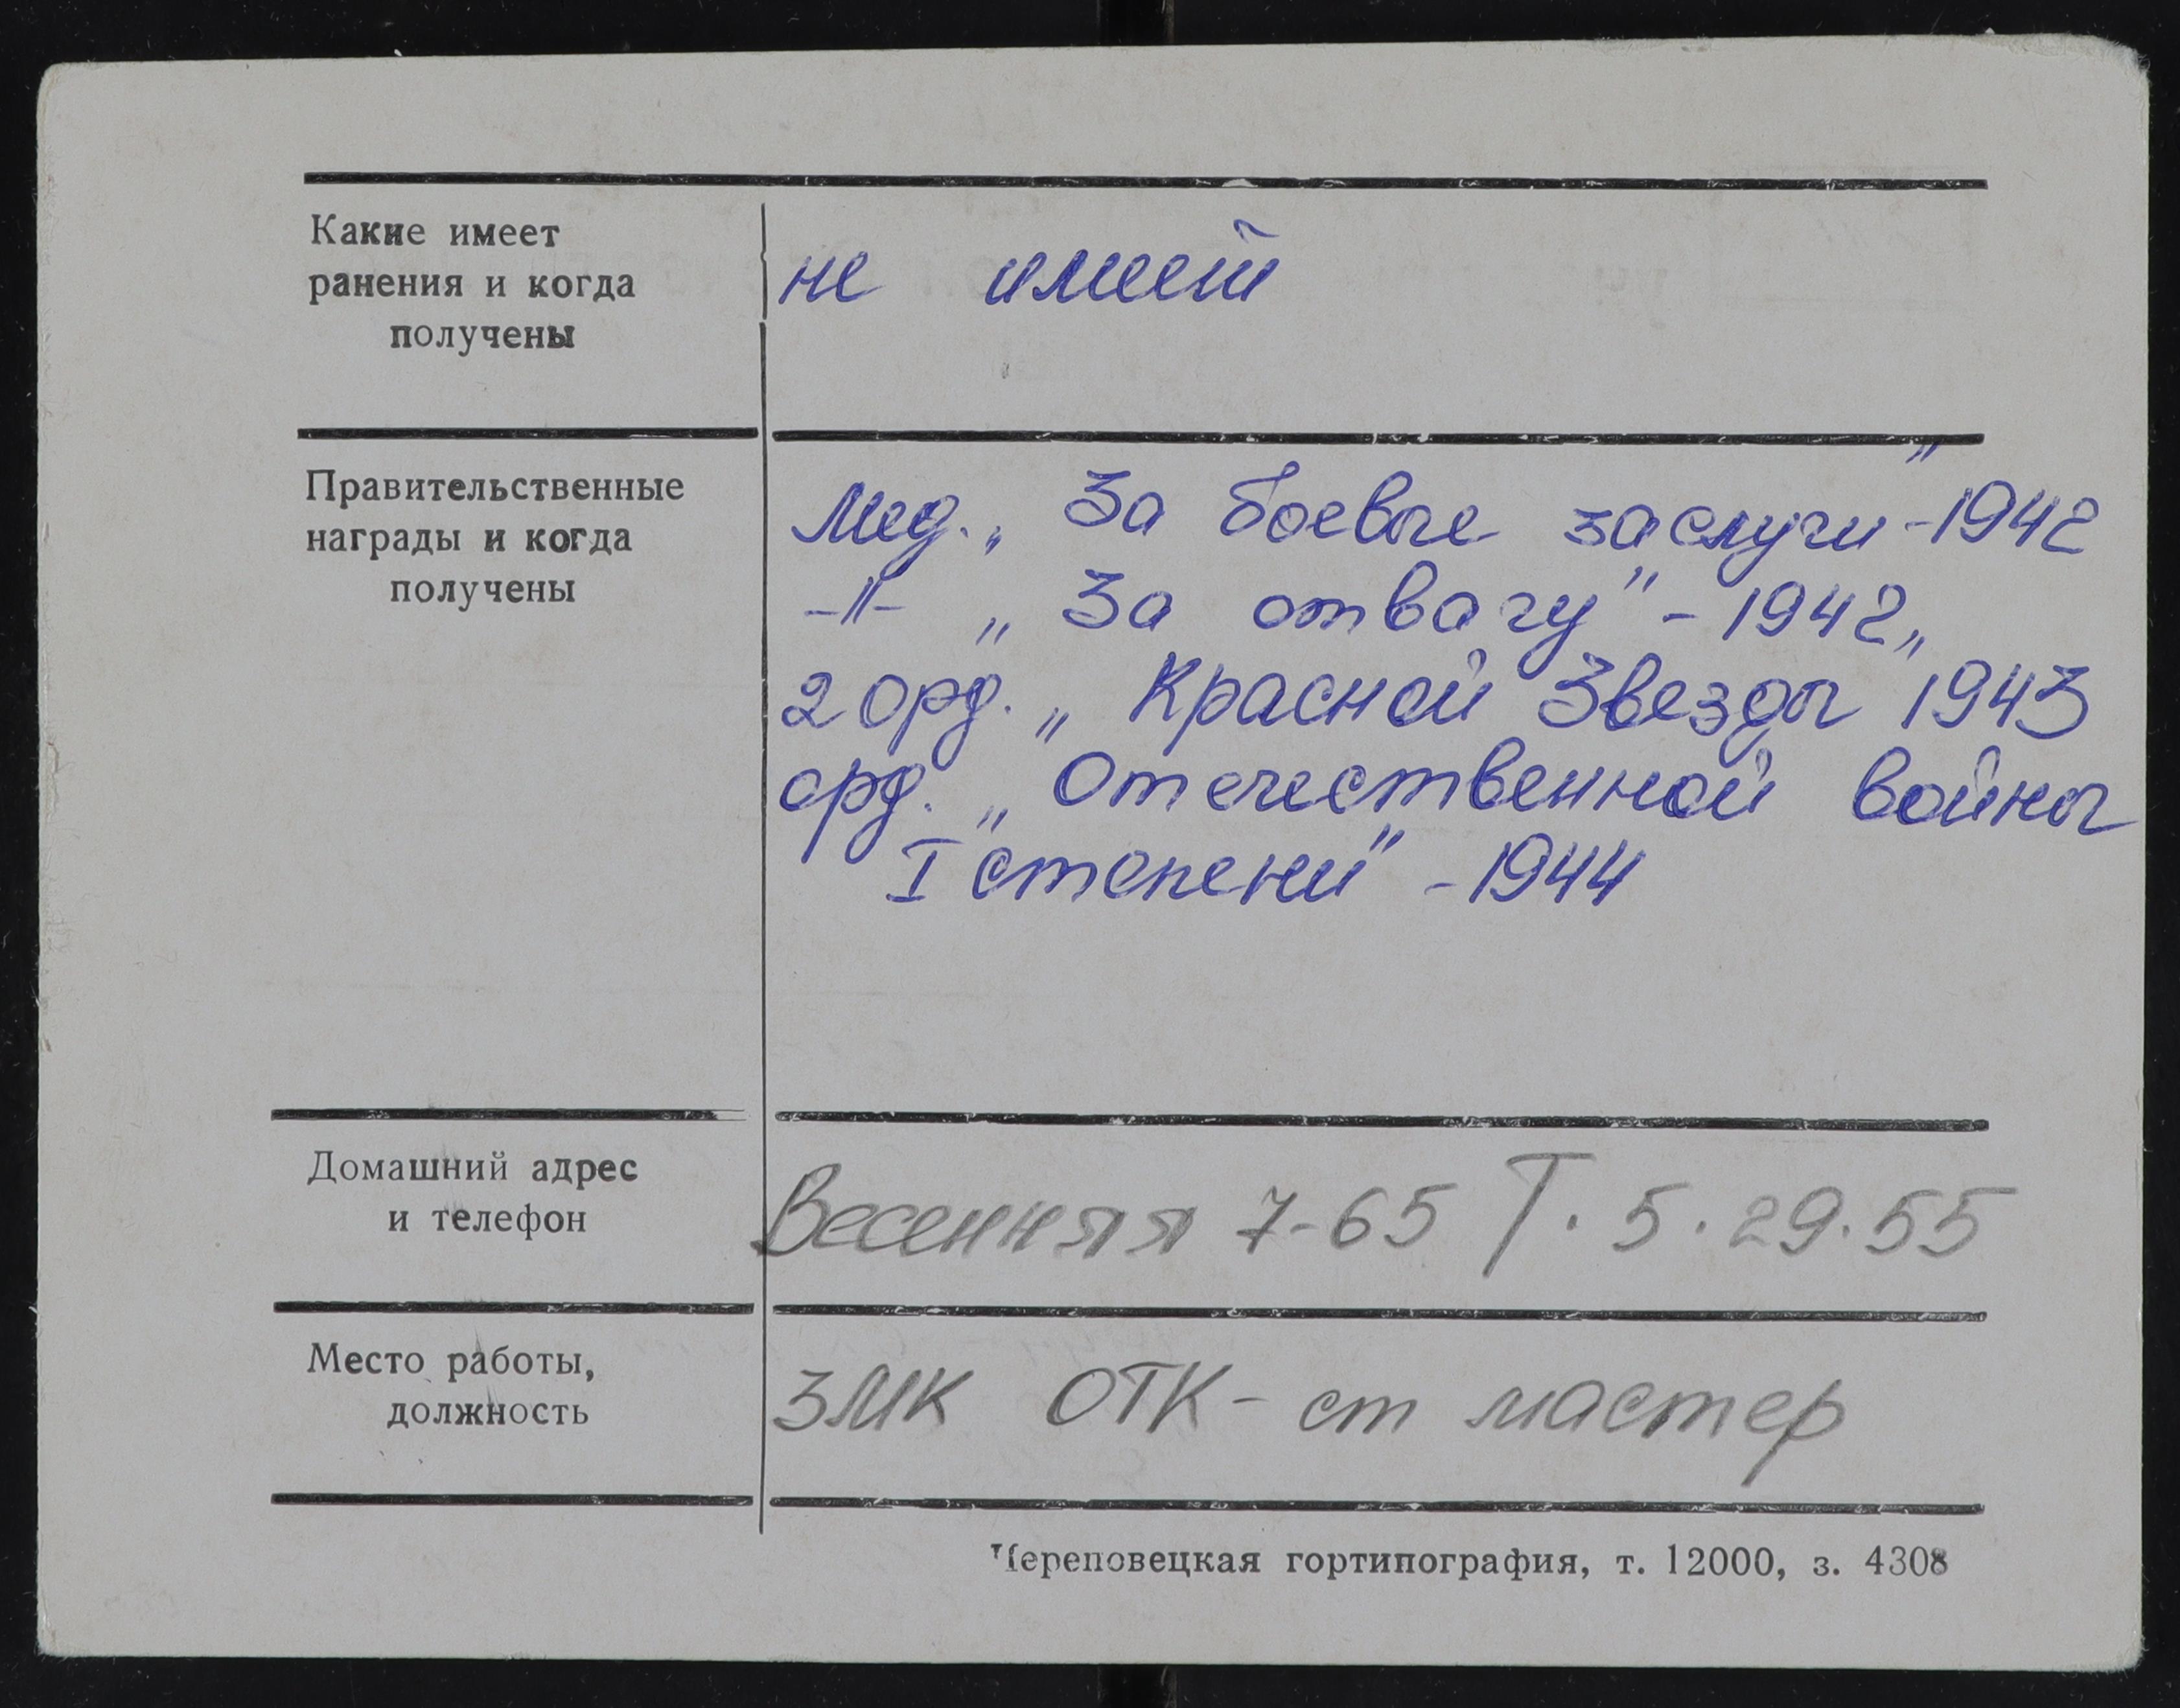 Какие имеет
ранения и когда
получены
не имеет
Правительственные
награды и когда
получены
Мед. „За боевые заслуги" - 1942
-//- „За отвагу" - 1942
2 орд. „Красной Звезды" 1943
орд. „Отечественной войны
I степени" - 1944
Домашний адрес
и телефон
Весенняя 7-65 Т. 5.29.55
Место работы,
должность
ЗМК ОТК - ст мастер
Череповецкая гортипография, т. 12000, з. 4308